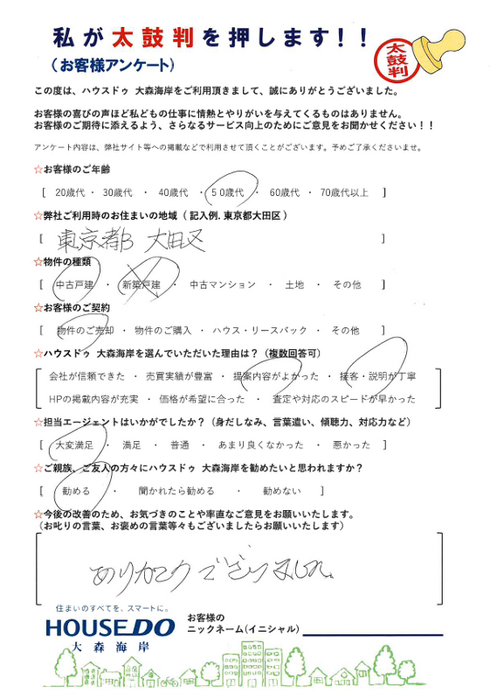 私が太鼓判を押します！！
太鼓判
（お客様アンケート）
この度は、ハウスドゥ 大森海岸をご利用頂きまして、誠にありがとうございました。
お客様の喜びの声ほど私どもの仕事に情熱とやりがいを与えてくるものはありません。
お客様のご期待に添えるよう、さらなるサービス向上のためにご意見をお聞かせください！！
アンケート内容は、弊社サイト等への掲載などで利用させて頂くことがございます。予めご了承くださいませ。
☆お客様のご年齢
[ 20歳代 ・ 30歳代 ・ 40歳代 ・ 50歳代 ・ 60歳代 ・ 70歳代以上 ]
☆弊社ご利用時のお住まいの地域（ 記入例. 東京都大田区 ）
[ 東京都 大田区 ]
☆物件の種類
[ 中古戸建 ・ 新築戸建 ・ 中古マンション ・ 土地 ・ その他 ]
☆お客様のご契約
[ 物件のご売却 ・ 物件のご購入 ・ ハウス・リースバック ・ その他 ]
☆ハウスドゥ 大森海岸を選んでいただいた理由は？（複数回答可）
会社が信頼できた ・ 売買実績が豊富 ・ 提案内容がよかった ・ 接客・説明が丁寧
HPの掲載内容が充実 ・ 価格が希望に合った ・ 査定や対応のスピードが早かった
☆担当エージェントはいかがでしたか？（身だしなみ、言葉遣い、傾聴力、対応力など）
[ 大変満足 ・ 満足 ・ 普通 ・ あまり良くなかった ・ 悪かった ]
☆ご親族、ご友人の方々にハウスドゥ 大森海岸を勧めたいと思われますか？
[ 勧める ・ 聞かれたら勧める ・ 勧めない ]
☆今後の改善のため、お気づきのことや率直なご意見をお願いいたします。
（お叱りの言葉、お褒めの言葉等々もございましたらお願いいたします）
ありがとうございました。
住まいのすべてを、スマートに。
HOUSEDO
大森海岸
お客様の
ニックネーム(イニシャル)